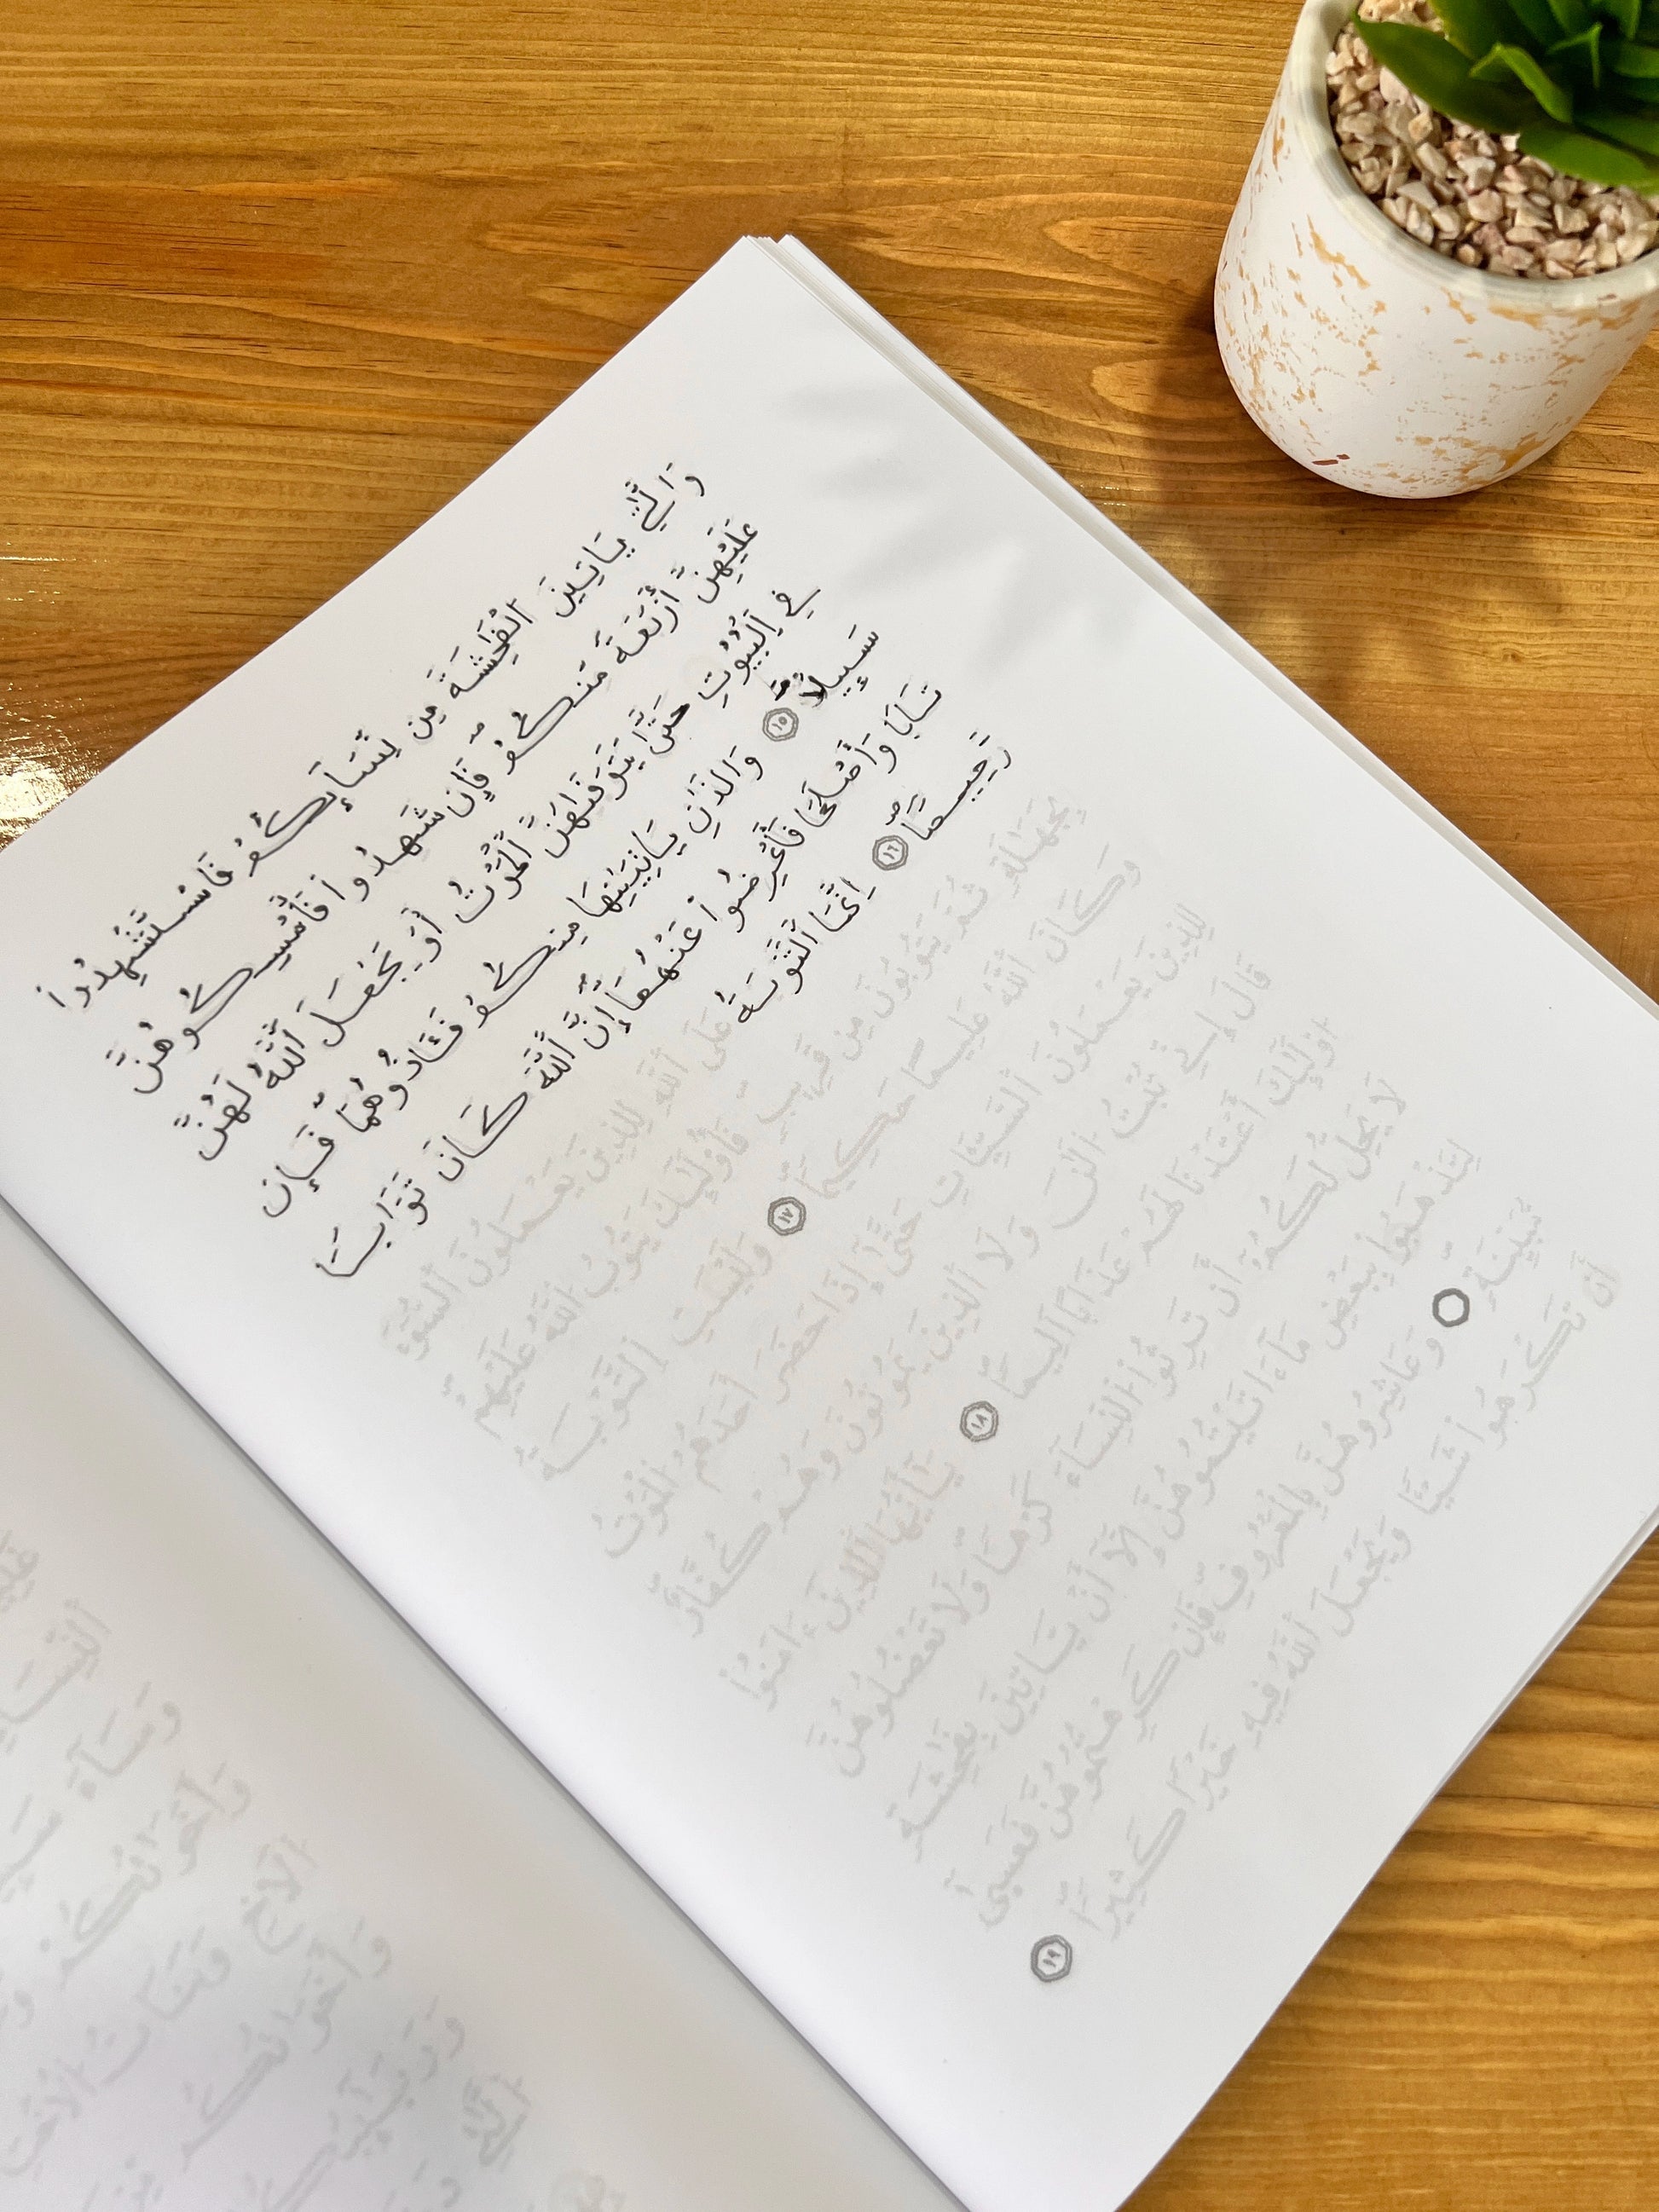 وَالّٰتِے يَاتِينَ اَلْفَٰحِشَةَ مِن نِّسَآئِكُمْ فَاسْتَشْهِدُواْ
عَلَيْهِنَّ أَرْبَعَةٗ مِّنكُمْ فَإِن شَهِدُواْ فَأَمْسِكُوهُنَّ
فِے اِلْبُيُوتِ حَتَّىٰ يَتَوَفّٰىهُنَّ اَلْمَوْتُ أَوْ يَجْعَلَ اَللَّهُ لَهُنَّ
سَبِيلاٗ ١٥ وَالذَٰنِ يَاتِيَٰنِهَا مِنكُمْ فَـَٔاذُوهُمَا فَإِن
تَابَا وَأَصْلَحَا فَأَعْرِضُواْ عَنْهُمَا إِنَّ اَللَّهَ كَانَ تَوَّاباٗ
رَّحِيماً ١٦ اِنَّمَا اَلتَّوْبَةُ عَلَى اَللَّهِ لِلذِينَ يَعْمَلُونَ اَلسُّوٓءَ
بِجَهَٰلَةٖ ثُمَّ يَتُوبُونَ مِن قَرِيبٖ فَأُوْلَٰٓئِكَ يَتُوبُ اُللَّهُ عَلَيْهِمْ
وَكَانَ اَللَّهُ عَلِيماً حَكِيماٗ ١٧ وَلَيْسَتِ اِلتَّوْبَةُ
لِلذِينَ يَعْمَلُونَ اَلسَّيِّـَٔاتِ حَتَّىٰٓ إِذَا حَضَرَ أَحَدَهُمُ اُلْمَوْتُ
قَالَ إِنِّے تُبْتُ اُلَٰنَ وَلَا اَلذِينَ يَمُوتُونَ وَهُمْ كُفَّارٌ
اوْلَٰٓئِكَ أَعْتَدْنَا لَهُمْ عَذَاباً اَلِيماٗ ١٨ يَٰٓأَيُّهَا اَلذِينَ ءَامَنُواْ
لَا يَحِلُّ لَكُمُۥٓ أَن تَرِثُواْ اُلنِّسَآءَ كَرْهاٗ وَلَا تَعْضُلُوهُنَّ
لِتَذْهَبُواْ بِبَعْضِ مَآ ءَاتَيْتُمُوهُنَّ إِلَّآ أَنْ يَّاتِينَ بِفَٰحِشَةٖ
مُّبَيَّنَةٖ وَعَاشِرُوهُنَّ بِالْمَعْرُوفِ فَإِن كَرِهْتُمُوهُنَّ فَعَسَىٰٓ
أَن تَكْرَهُواْ شَيْـٔاٗ وَيَجْعَلَ اَللَّهُ فِيهِ خَيْراٗ كَثِيراٗ ١٩